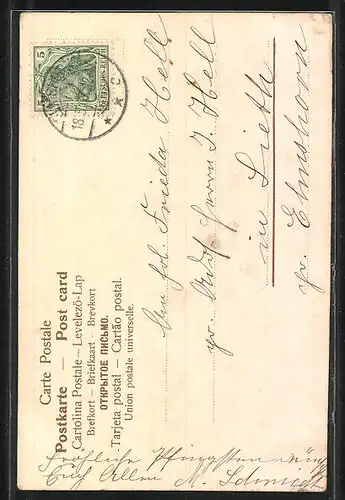 Carte Postale
Postkarte — Post card
Cartolina Postale — Levelező-Lap
Brefkort — Briefkaart — Brevkort
ОТКРЫТОЕ ПИСЬМО.
Tarjeta postal — Cartão postal.
Union postale universelle.
5
An Frl. Frieda Hell
pr. Adr. Herrn J. Hell
in Lieth
pr. Elmshorn
Fröhliche Pfingsten
Euch Allen M. Schmidt